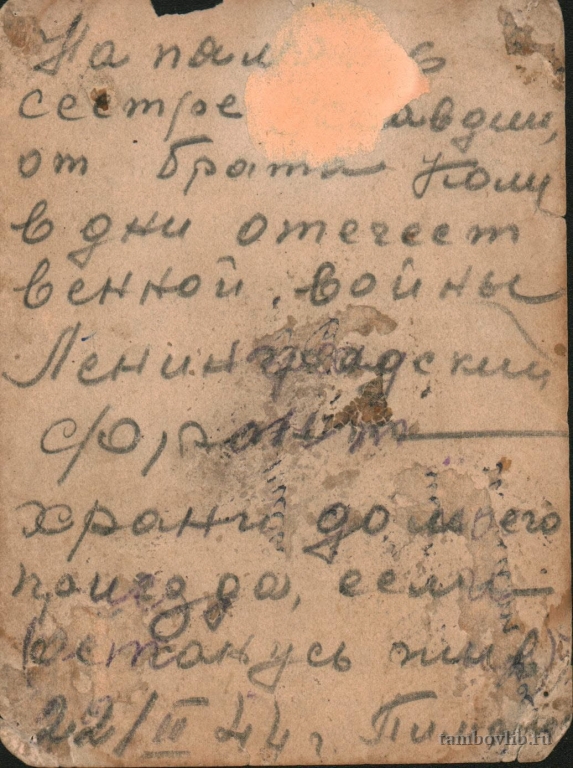 На
сестре
от брата Коли
в дни отечест
венной войны
Ленинградский
фронт
храни до моего
приезда, если
(останусь жив)
22/II 44 г
tambovlib.ru